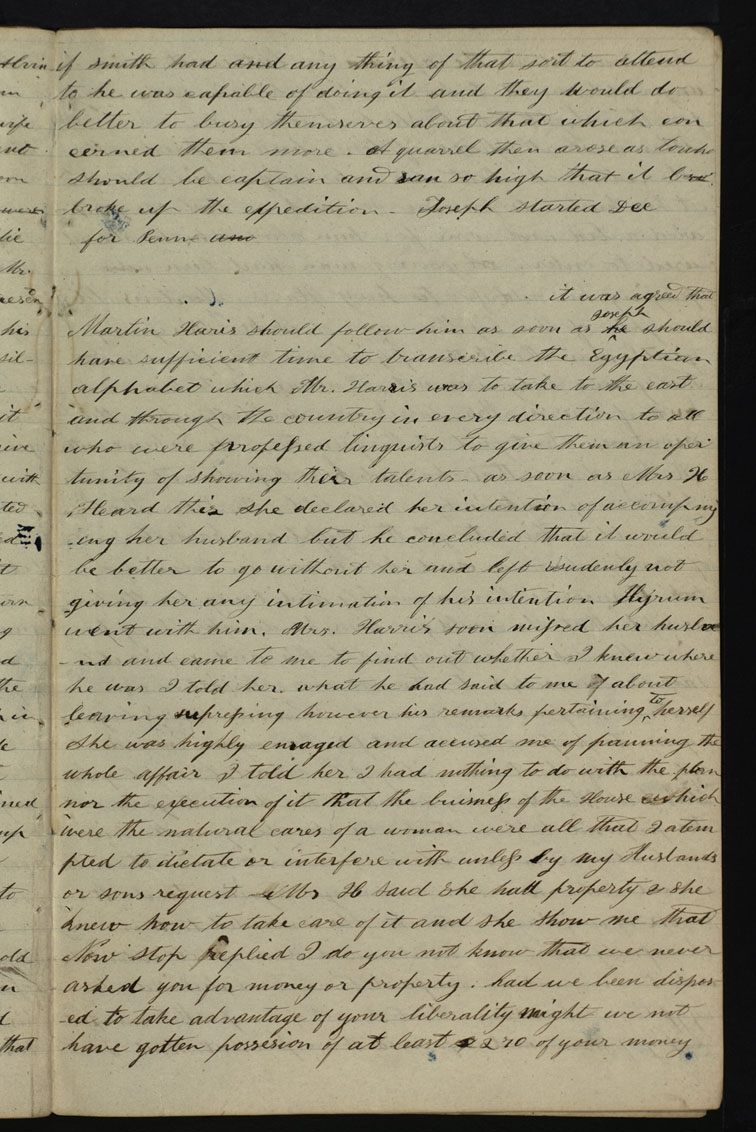 if smith had and any thing of that sort to attend
to he was capable of doing it and they would do
better to busy themserves about that which con
cerned them more. A quarrel then arose as to who
should be captain and ran so high that it
broke up the expedition - Joseph started Dec
for Penn and
it was agreed that
Joseph
Martin Haris should follow him as soon as he should
have sufficient time to transcribe the Egyptian
alphabet which Mr. Harris was to take to the east
and through the country in every direction to all
who were professed linguists to give them an oper
tunity of showing their talents - as soon as Mrs H
Heard this she declared her intention of accompany
eng her husband but he concluded that it would
be better to go without her and left suudenly not
giving her any intimation of his intention Hyrum
went with him. Mrs. Harris soon missed her husba
-nd and came to me to find out whether I knew where
he was I told her what he had said to me of about
to
leaving supressing however his remarks pertaining herself
She was highly enraged and accused me of planning the
whole affair I told her I had nothing to do with the plan
nor the execution of it that the buisness of the House which
were the natural cares of a woman were all that I atem
pted to dictate or interfere with unless by my Husbands
or sons request Mrs H said she had property & she
knew how to take care of it and she show me that
Now stop replied I do you not know that we never
asked you for money or property. had we been dispos
ed to take advantage of your liberality might we not
have gotten possesion of at least 270 of your money